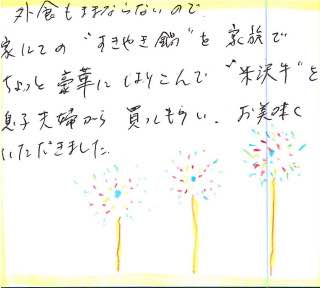 外食もままならないので
家にての"すきやき鍋"を 家族で
ちょっと豪華にはりこんで"米沢牛"を
息子夫婦から買ってもらい、お美味く
いただきました.